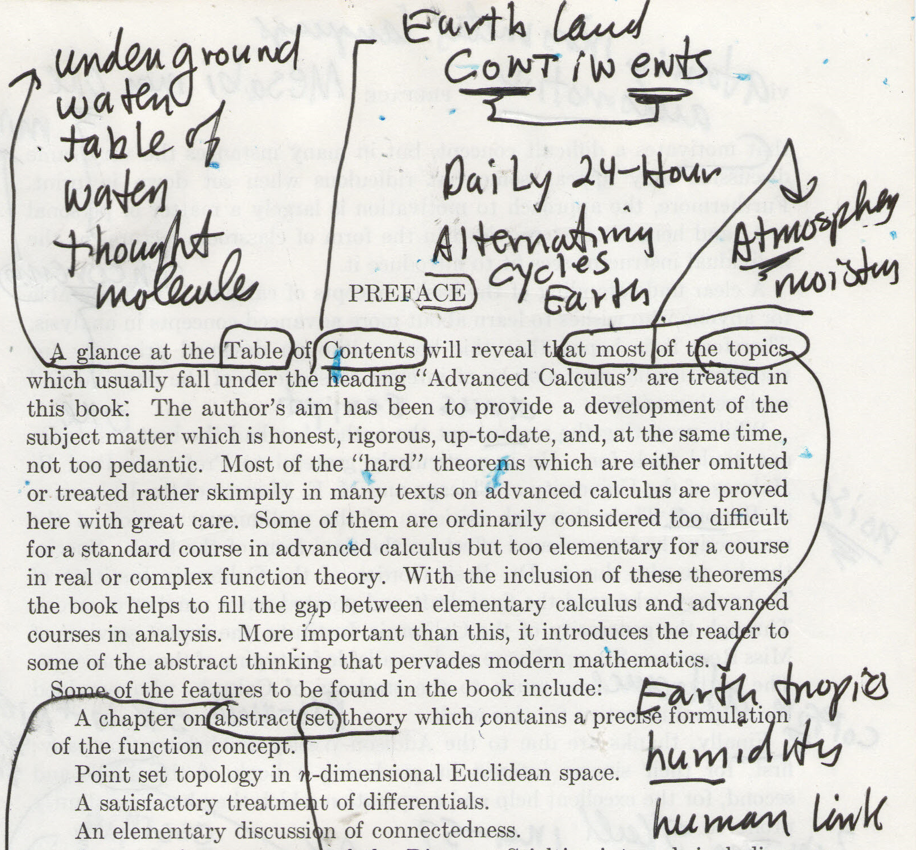 Earth land
Continents
underground
water
table of
water
thought
molecules
Daily 24-Hour
Alternating
Cycles
Earth
Atmosphey
moistuy
PREFACE
A glance at the Table of Contents will reveal that most of the topics
which usually fall under the heading “Advanced Calculus” are treated in
this book: The author’s aim has been to provide a development of the
subject matter which is honest, rigorous, up-to-date, and, at the same time,
not too pedantic. Most of the “hard” theorems which are either omitted
or treated rather skimpily in many texts on advanced calculus are proved
here with great care. Some of them are ordinarily considered too difficult
for a standard course in advanced calculus but too elementary for a course
in real or complex function theory. With the inclusion of these theorems,
the book helps to fill the gap between elementary calculus and advanced
courses in analysis. More important than this, it introduces the reader to
some of the abstract thinking that pervades modern mathematics.
Some of the features to be found in the book include:
A chapter on abstract set theory which contains a precise formulation
of the function concept.
Point set topology in n-dimensional Euclidean space.
A satisfactory treatment of differentials.
An elementary discussion of connectedness.
Earth tropics
humidity
human link